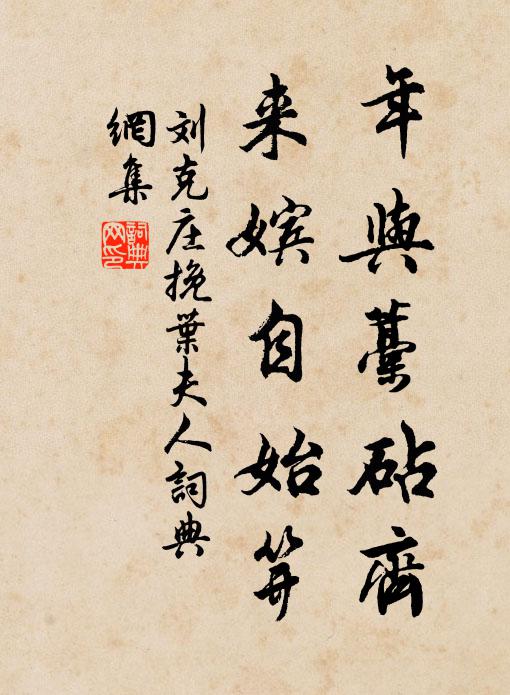 年與藁砧齊
来嫔自始笄
刘克庄挽葉夫人詞典
網集
詞典
网印